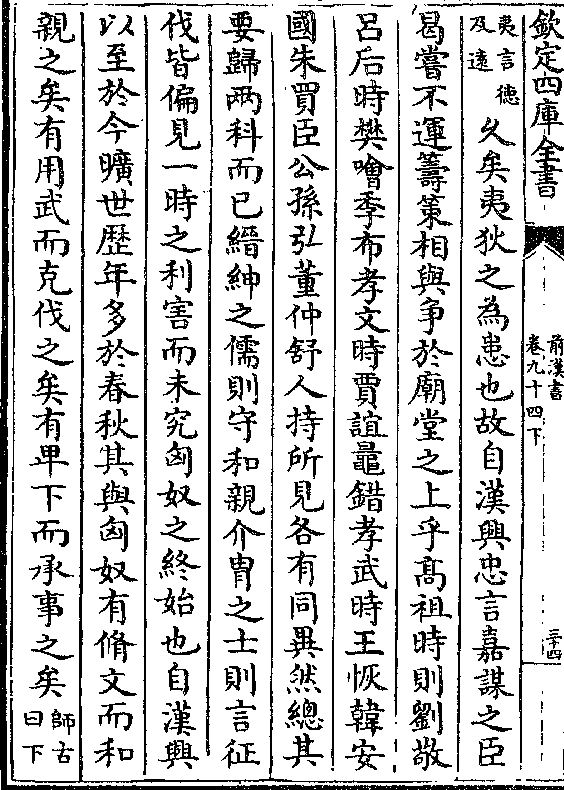 欽定四庫全書
前漢書
卷九十四下
三十四
夷言德
及遠
久矣夷狄之為患也故自漢興忠言嘉謀之臣
曷嘗不運籌策相與争於廟堂之上乎髙祖時則劉敬
呂后時樊噲季布孝文時賈誼鼂錯孝武時王恢韓安
國朱買臣公孫弘董仲舒人持所見各有同異然總其
要歸兩科而已縉紳之儒則守和親介胄之士則言征
伐皆偏見一時之利害而未究匈奴之終始也自漢興
以至於今曠世歴年多於春秋其與匈奴有脩文而和
親之矣有用武而克伐之矣有卑下而承事之矣
師古
曰下